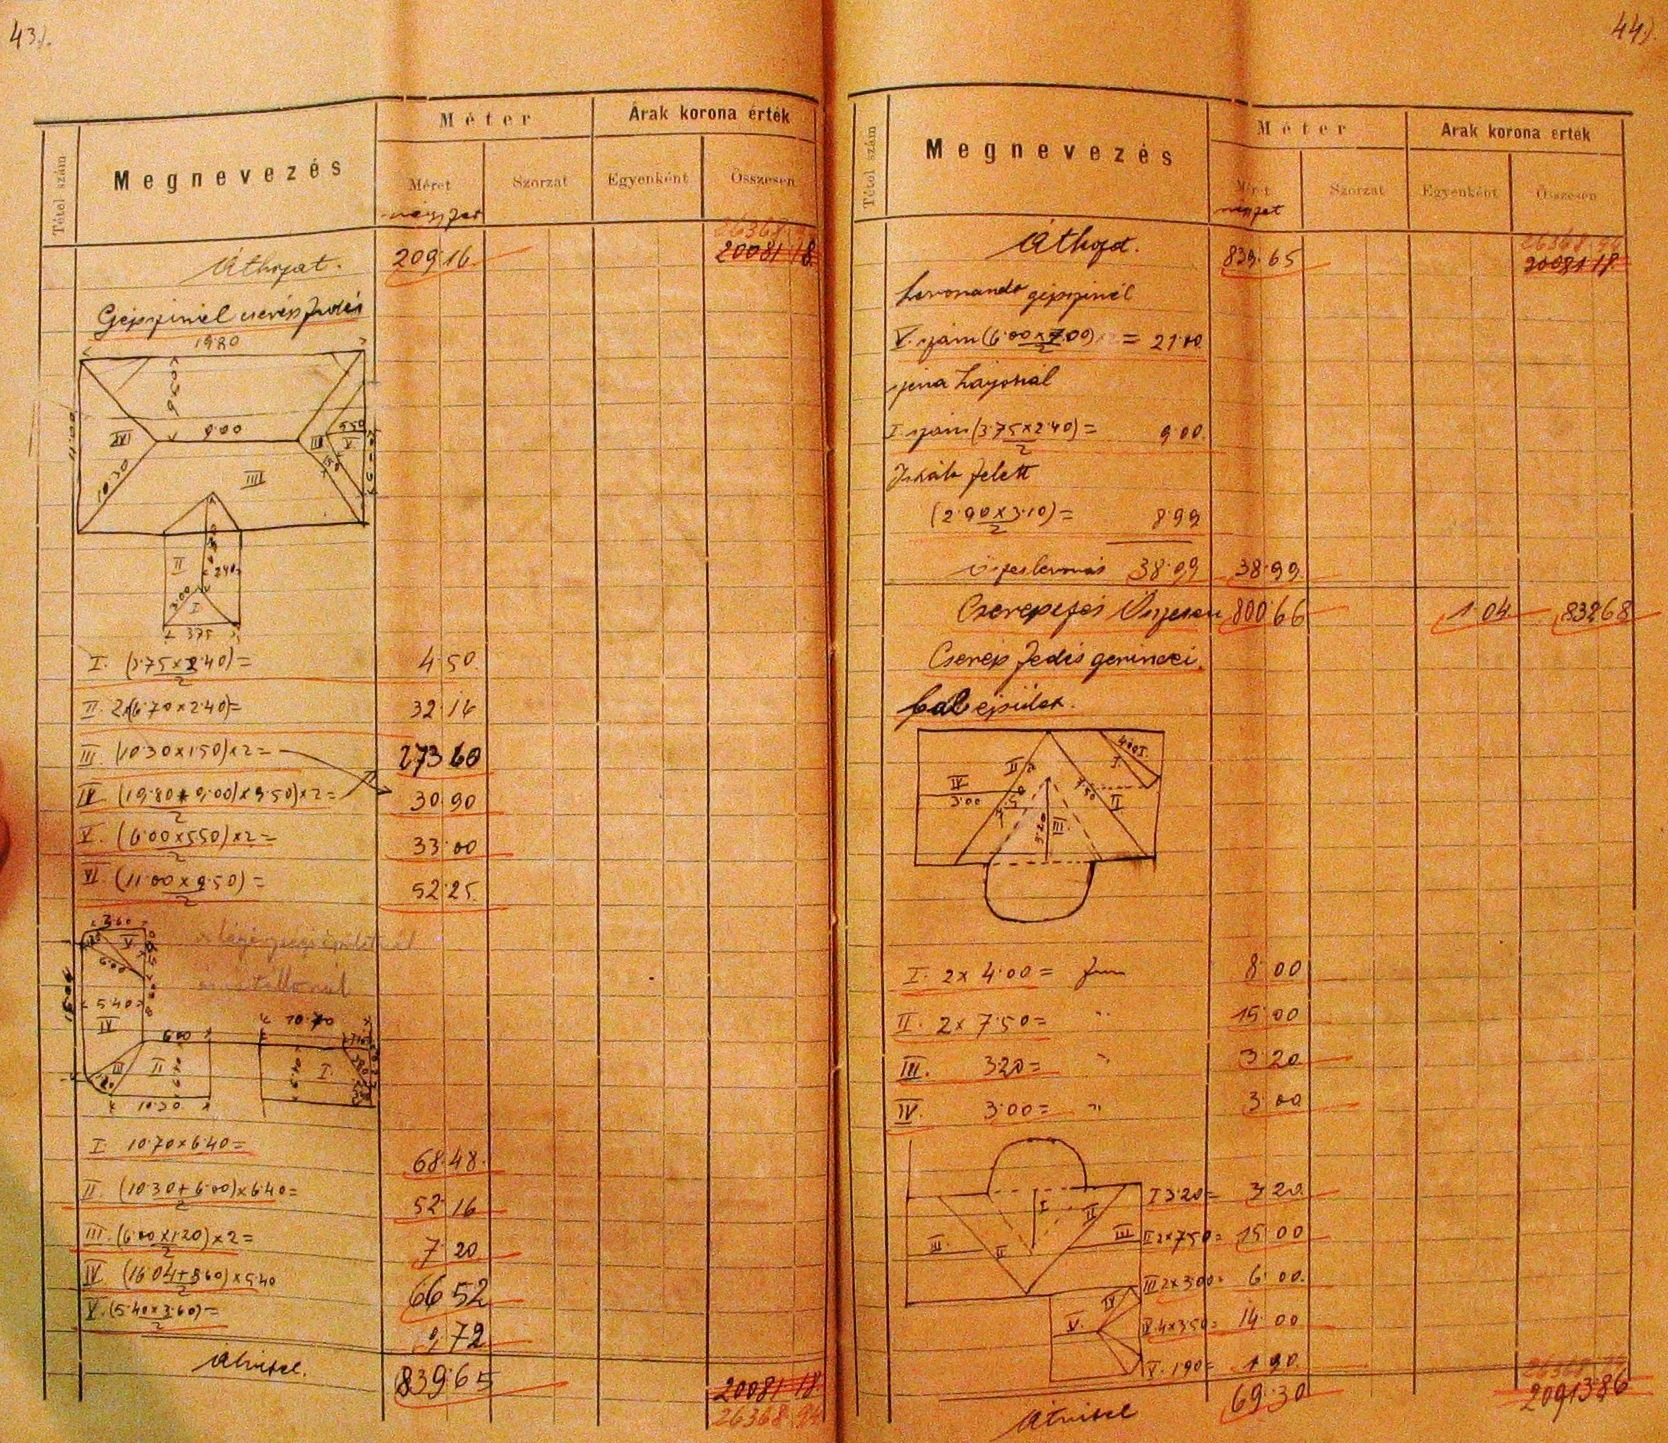 43).
Tétel szám
Megnevezés
Méter
Árak korona érték
Méret
Szorzat
Egyenként
Összesen
26368.94
Áthozat. 209.16 20081 18.
Gépszinél cserép fedés
19.80
9.50
11.00
VI
9.00
III
V
5.50
10.30
III
II
2.40
3.00
I
3.75
I. (3.75×2.40)= 4.50
2
II. 2×(6.70×2.40)= 32.16
III. (10.30×1.50)×2= 273 60
IV. (19.80+9.00)×9.50)×2= 30.90
2
V. (6.00×5.50)×2= 33.00
2
VI. (11.00×9.50)= 52.25
2
3.60
V
6.00
5.40
IV
6.00
10.70
III
II
I.
10.30
I. 10.70×6.40= 68.48.
II. (10.30+6.00)×6.40= 52 16
2
III. (6.00×1.20)×2= 7.20
2
IV. (16.04+8.60)×5.40 66 52
2
V. (5.40×3.60)= 9.72
2
Átvitel. 839.65 20081 18.
26368.94
44).
Tétel szám
Megnevezés
Méter
Árak korona érték
Méret
Szorzat
Egyenként
Összesen
26368.94
Áthozat. 839.65 20081 18.
Levonandó gépszinél
V. szám (6.00×7.00) = 21.00
2
I. szám (3.75×2.40)= 9.00.
2
felett
(2.90×3.10)= 8.99
2
38.99 38.99
Cserepezés Összesen 800 66 1.04 832 68
Cserép fedés gerinczei.
Bal épület.
4.00
I.
II
IV
3.00
7.50
II
3.20
III.
I. 2× 4.00= fm 8.00
II. 2× 7.50= " 15.00
III. 3.20= " 3.20
IV. 3.00= " 3.00
I 3.20= 3.20
I
II
III
II
III
II 2×7.50= 15.00
III 2×3.00= 6.00.
IV
V.
IV. 4×3.50= 14.00
V. 1.90= 1.90.
26368.94
Átvitel 69.30 20913.86